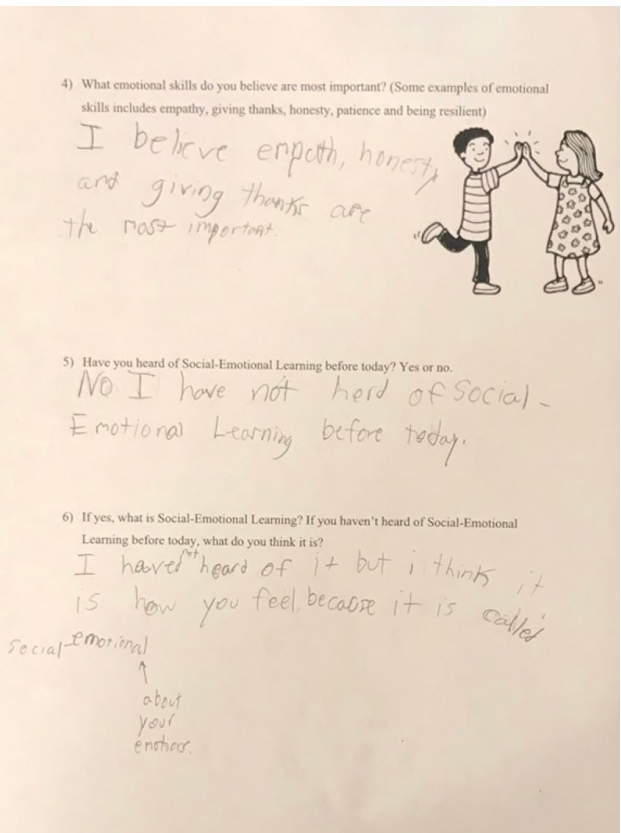 4) What emotional skills do you believe are most important? (Some examples of emotional
skills includes empathy, giving thanks, honesty, patience and being resilient)
I believe empath, honesty
and giving thanks are
the most important.
5) Have you heard of Social-Emotional Learning before today? Yes or no.
No I have not herd of Social-
Emotional Learning before today.
6) If yes, what is Social-Emotional Learning? If you haven't heard of Social-Emotional
Learning before today, what do you think it is?
I haved not heard of it but i think it
is how you feel because it is called
social-emotional
↑
about
your